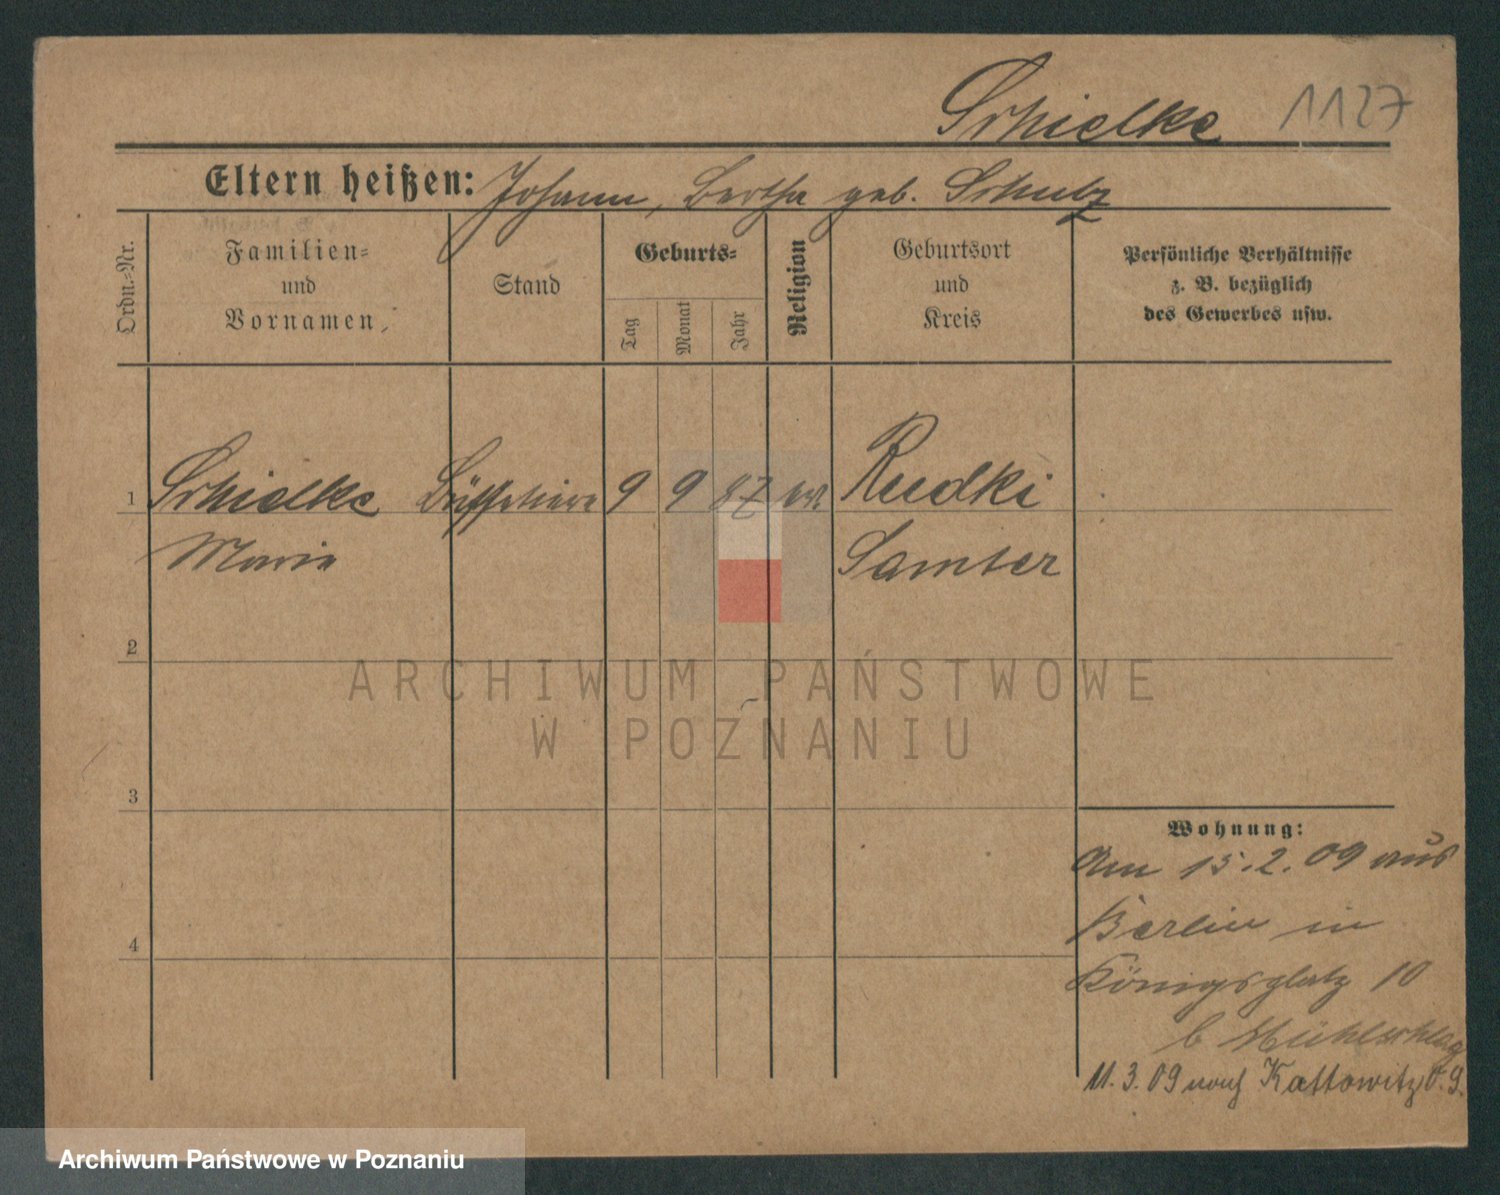 Schielke 1127
Eltern heißen: Johann, Bertha geb. Schulz
Ordn.=Nr.
Familien=
und
Vornamen
Stand
Geburts=
Tag
Monat
Jahr
Religion
Geburtsort
und
Kreis
Persönliche Verhältnisse
z. B. bezüglich
des Gewerbes usw.
1 Schielke 9 9 87 Rudki
Marie Samter
2
ARCHIWUM PAŃSTWOWE
W POZNANIU
3
Wohnung:
Am 15.2.09 aus
Berlin in
4
Königsplatz 10
b Mühlschlag
11.3.09 nach Kattowitz O.S.
Archiwum Państwowe w Poznaniu